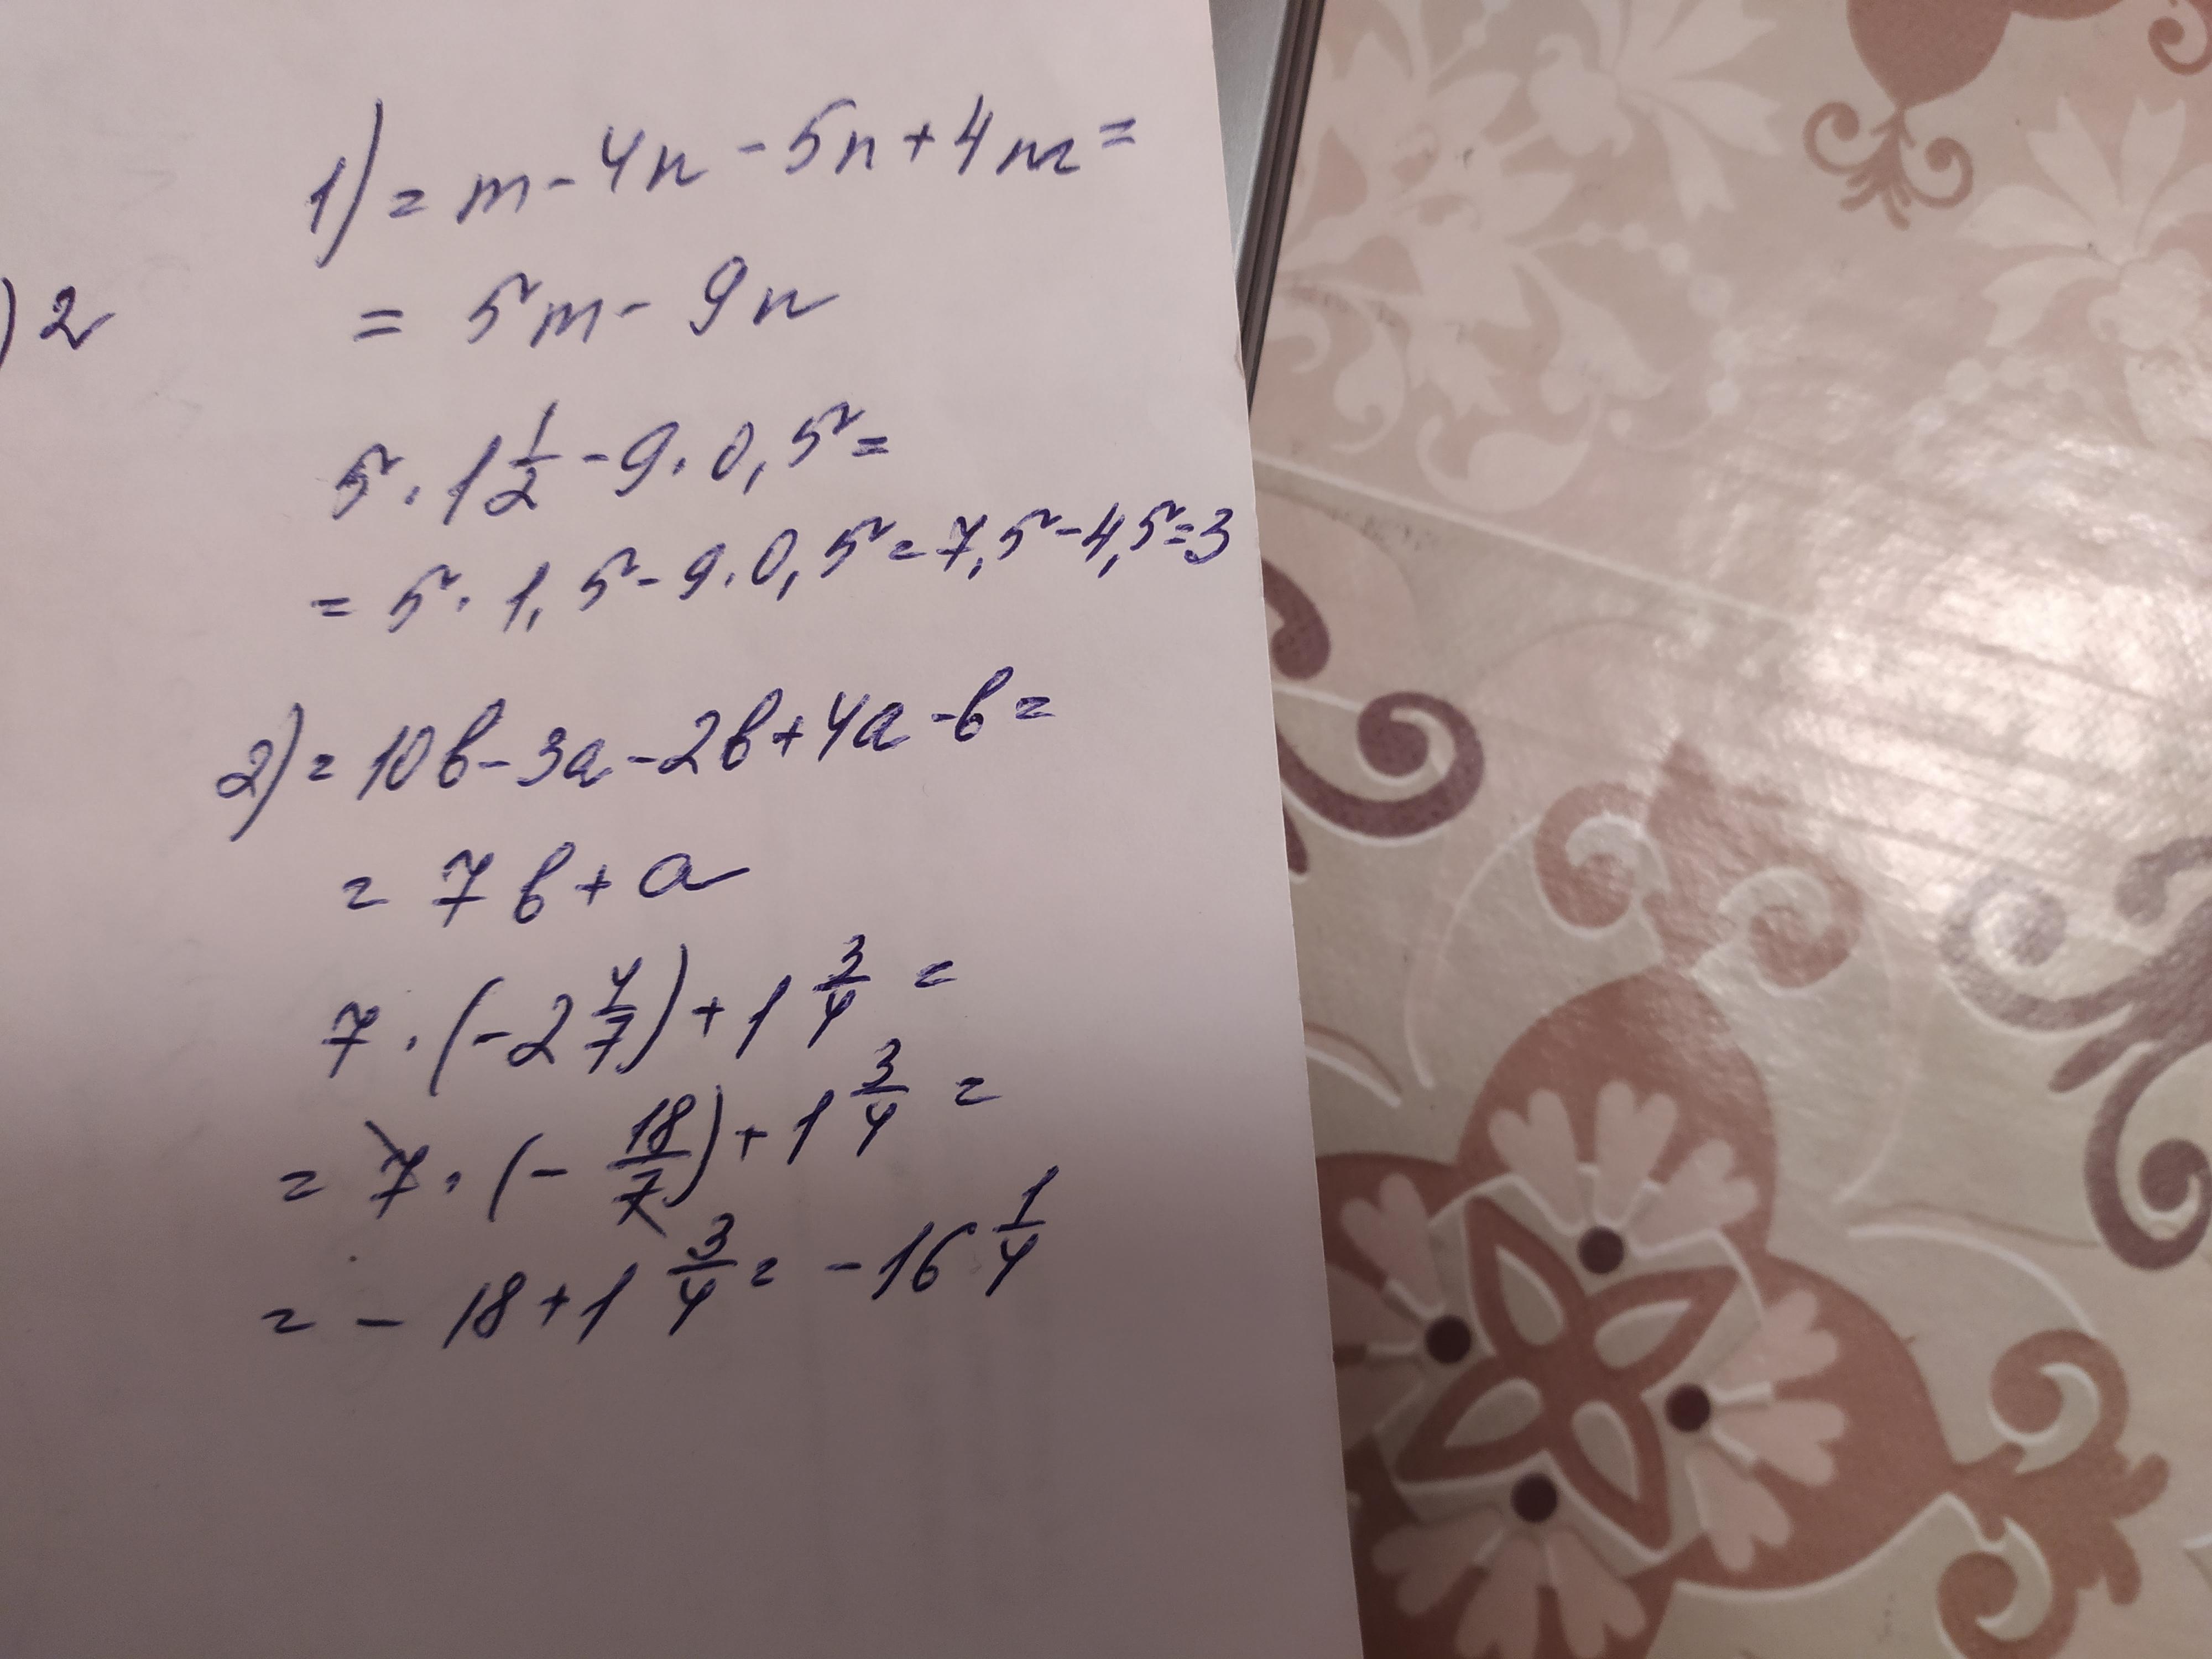 1) = m - 4n - 5n + 4m =
) 2
= 5m - 9n
5 · 1 1/2 - 9 · 0,5 =
= 5 · 1,5 - 9 · 0,5 = 7,5 - 4,5 = 3
2) = 10в - 3а - 2в + 4а - в =
= 7в + а
7 · (-2 4/7) + 1 3/4 =
= 7 · (- 18/7) + 1 3/4 =
= - 18 + 1 3/4 = - 16 1/4